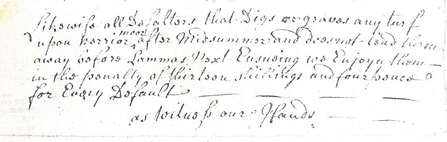 likewise all Defalters that Digs or graves any turf
upon herrior moor after Midsummer and does not lead them
away before Lammas Next Ensuing we Enjoyn them
in the penalty of thirteen shillings and four pence
for Every Default
as witness our Hands